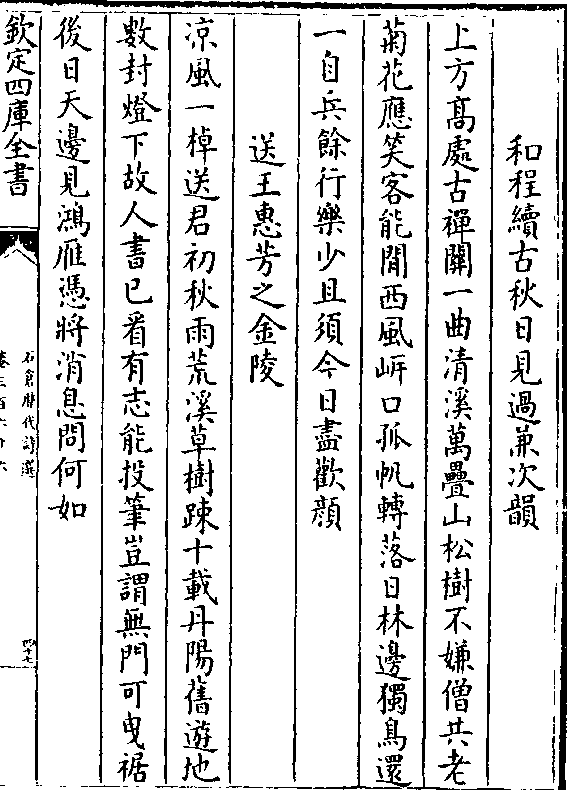 和程續古秋日見過兼次韻
上方髙處古禪關一曲清溪萬疊山松樹不嫌僧共老
菊花應笑客能閒西風㟁口孤帆轉落日林邊獨鳥還
一自兵餘行樂少且須今日盡歡顔
送王惠芳之金陵
凉風一棹送君初秋雨荒溪草樹踈十載丹陽舊遊地
數封燈下故人書已看有志能投筆豈謂無門可曳裾
後日天邊見鴻雁憑將消息問何如
欽定四庫全書
石倉歷代詩選
四十七